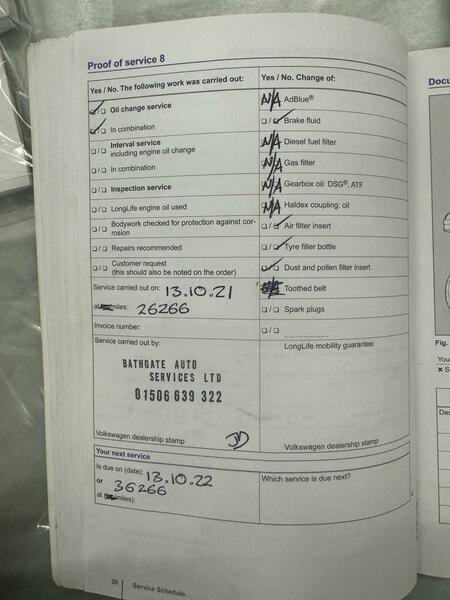 Proof of service 8
Yes / No. The following work was carried out:
Oil change service
In combination
Interval service
including engine oil change
In combination
Inspection service
LongLife engine oil used
Bodywork checked for protection against cor-
rosion
Repairs recommended
Customer request
(this should also be noted on the order)
Service carried out on: 13.10.21
at miles: 26266
Invoice number:
Service carried out by:
BATHGATE AUTO
SERVICES LTD
01506 639 322
Volkswagen dealership stamp
Yes / No. Change of:
N/A AdBlue®
Brake fluid
N/A Diesel fuel filter
N/A Gas filter
N/A Gearbox oil: DSG®, ATF
N/A Haldex coupling: oil
Air filter insert
Tyre filler bottle
Dust and pollen filter insert
Toothed belt
Spark plugs
....................
LongLife mobility guarantee:
Volkswagen dealership stamp
Your next service
Is due on (date): 13.10.22
or 36266
at miles):
Which service is due next?
26 Service Schedule
Docu
Fig.
You
× S
Des